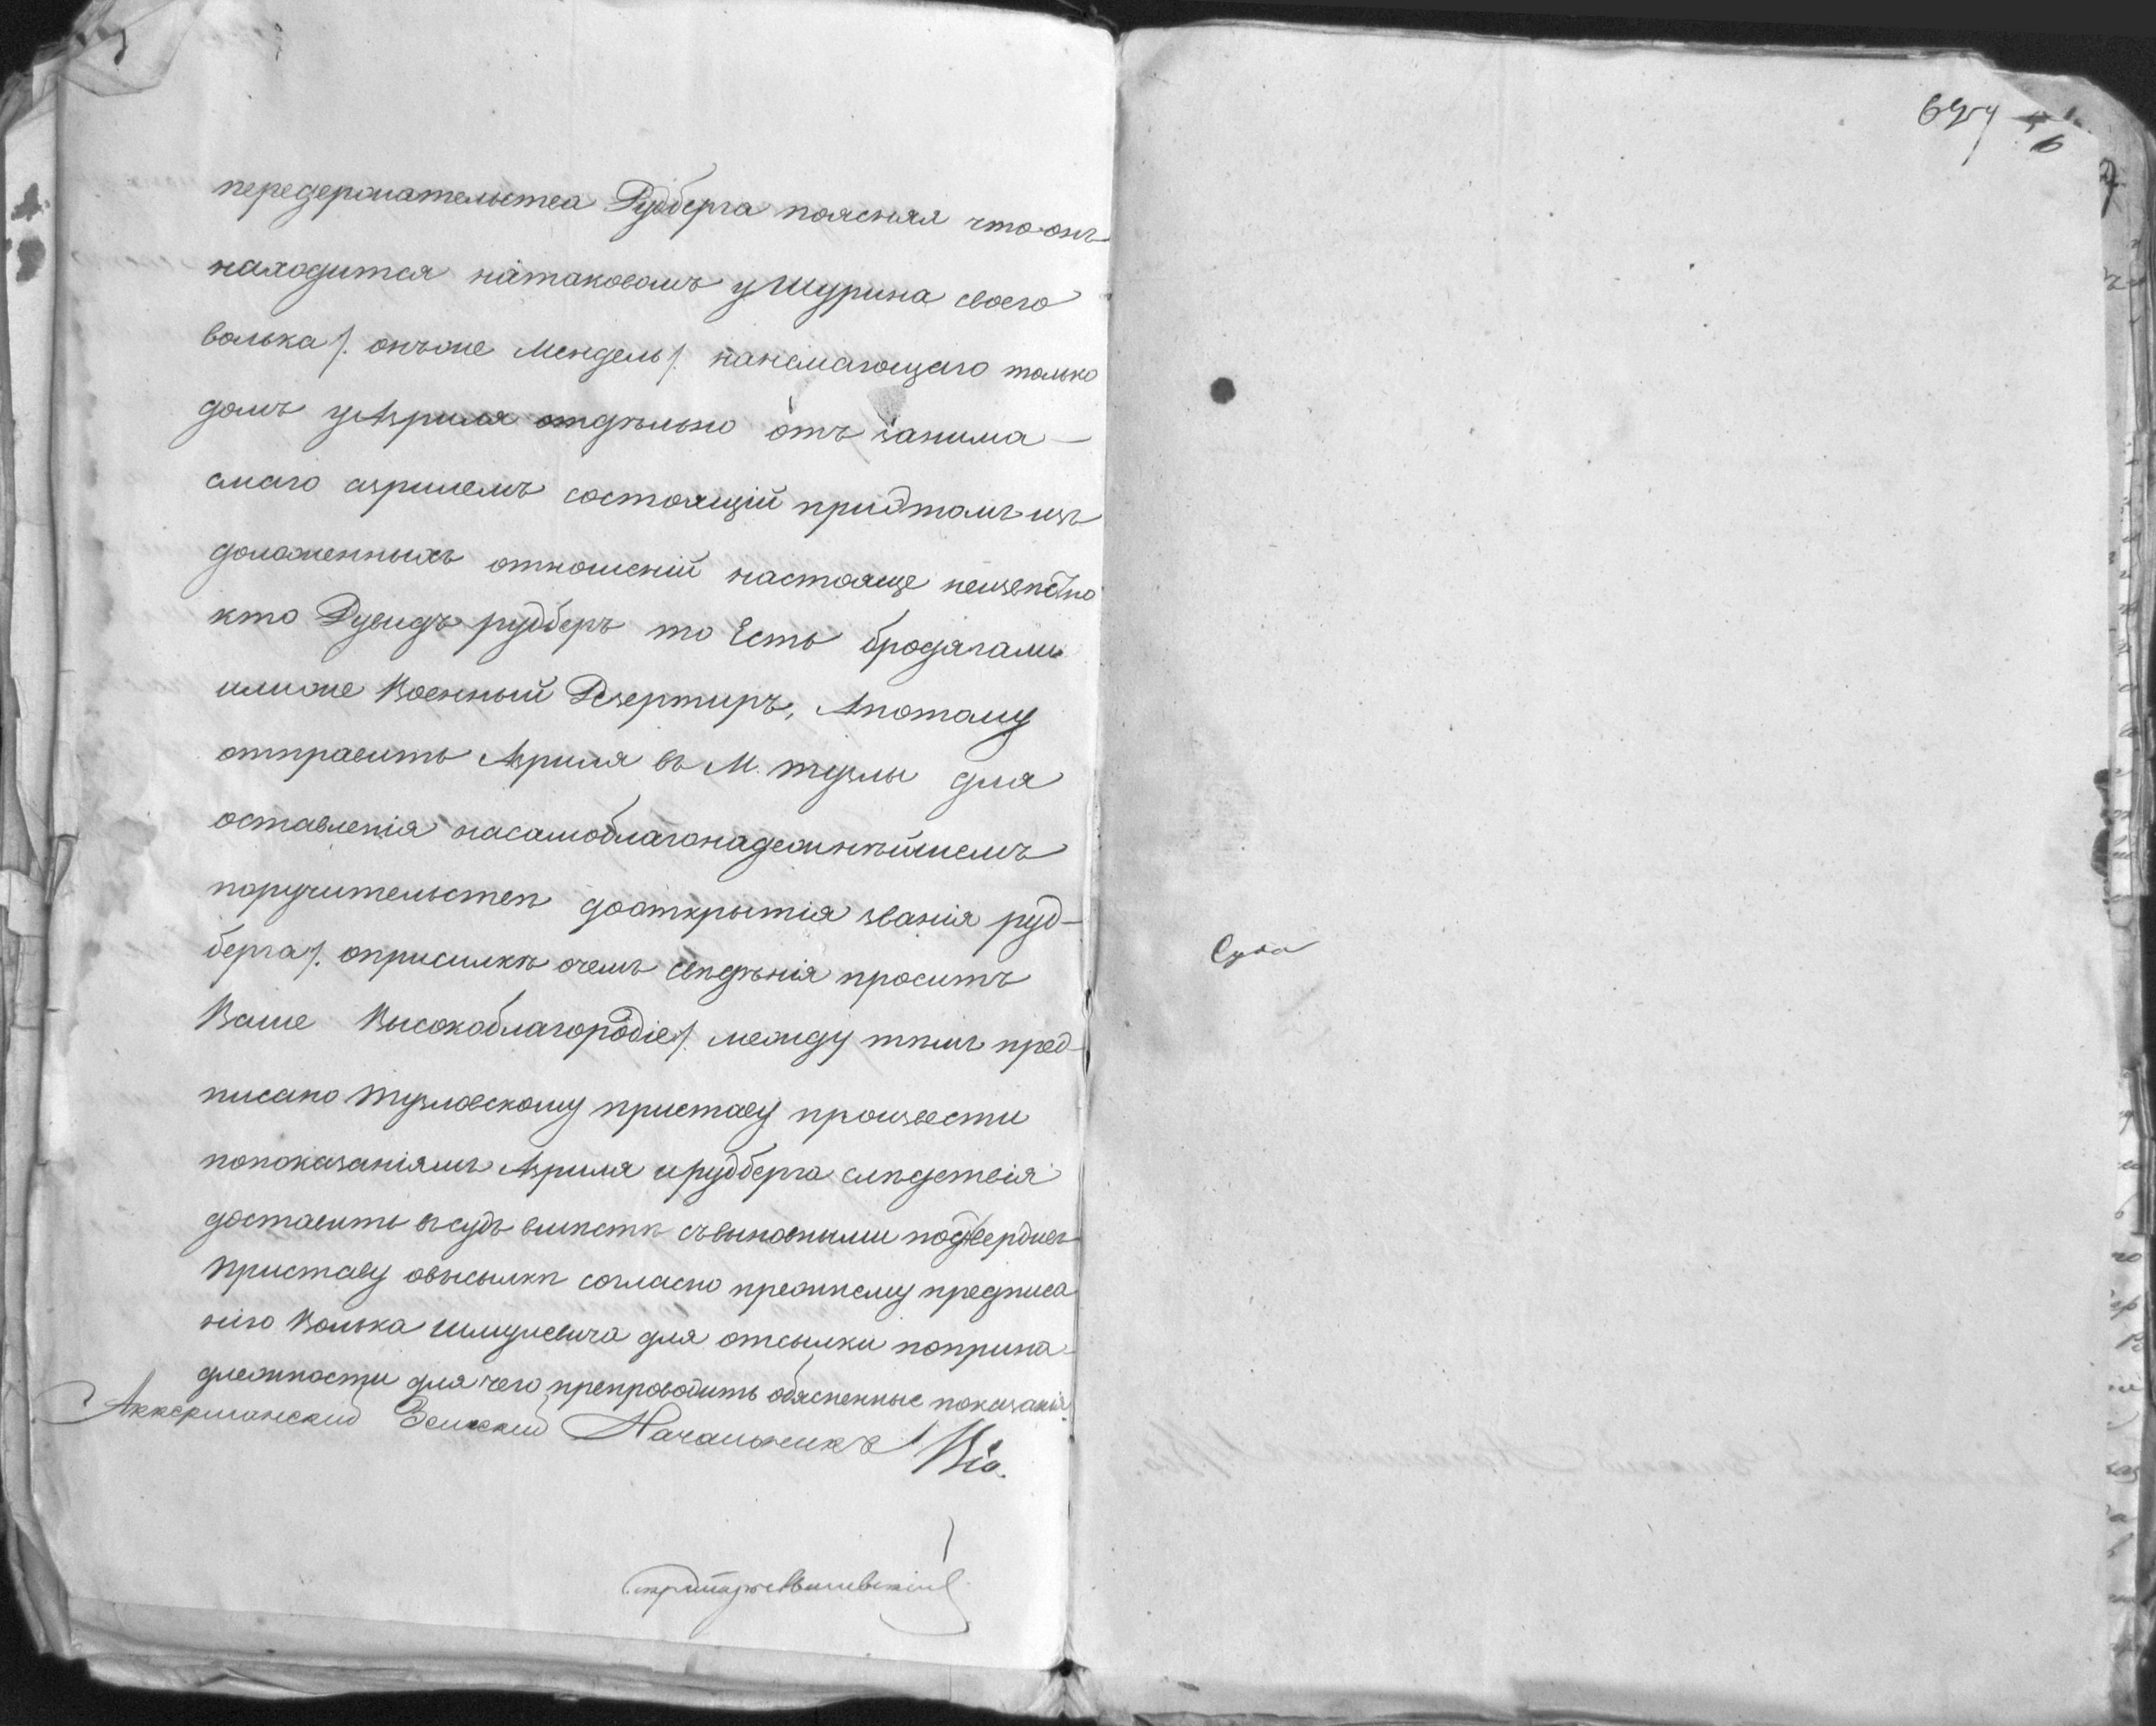 передержательства Рудберга поясняя что онъ
находится натаковомъ у Шурина своего
волька /. онъ же Мендель /. нанемающаго только
домъ у Азриля отдѣльно отъ занима-
емаго азрилемъ состоящій придтомъ изъ
доложенныхъ отношеній настояще неизвѣстно
кто Дувидъ рудберъ то Есть бродягали
илиже Военный Дезертиръ, Апотому
отправить Азриля въ М. тузлы для
оставленія насамоблагонадежнѣйшемъ
поручительствѣ дооткрытія званія руд-
берга /. оприсилкѣ очемъ свѣдѣнія проситъ
Ваше Высокоблагородіе /. между тѣмъ пред-
писано тузловскому приставу произвести
попоказаніямъ Азриля ирудберга слѣдствія
доставить въсудъ вмѣстѣ съвиновными подтвердивъ
приставу овысылкѣ согласно прежнему предписа
нію Волька шмулевича для отсылки поприна-
длежности для чего препроводить обясненные показанія.
Аккерманский Земский Начальникъ
Секретарь
Суда